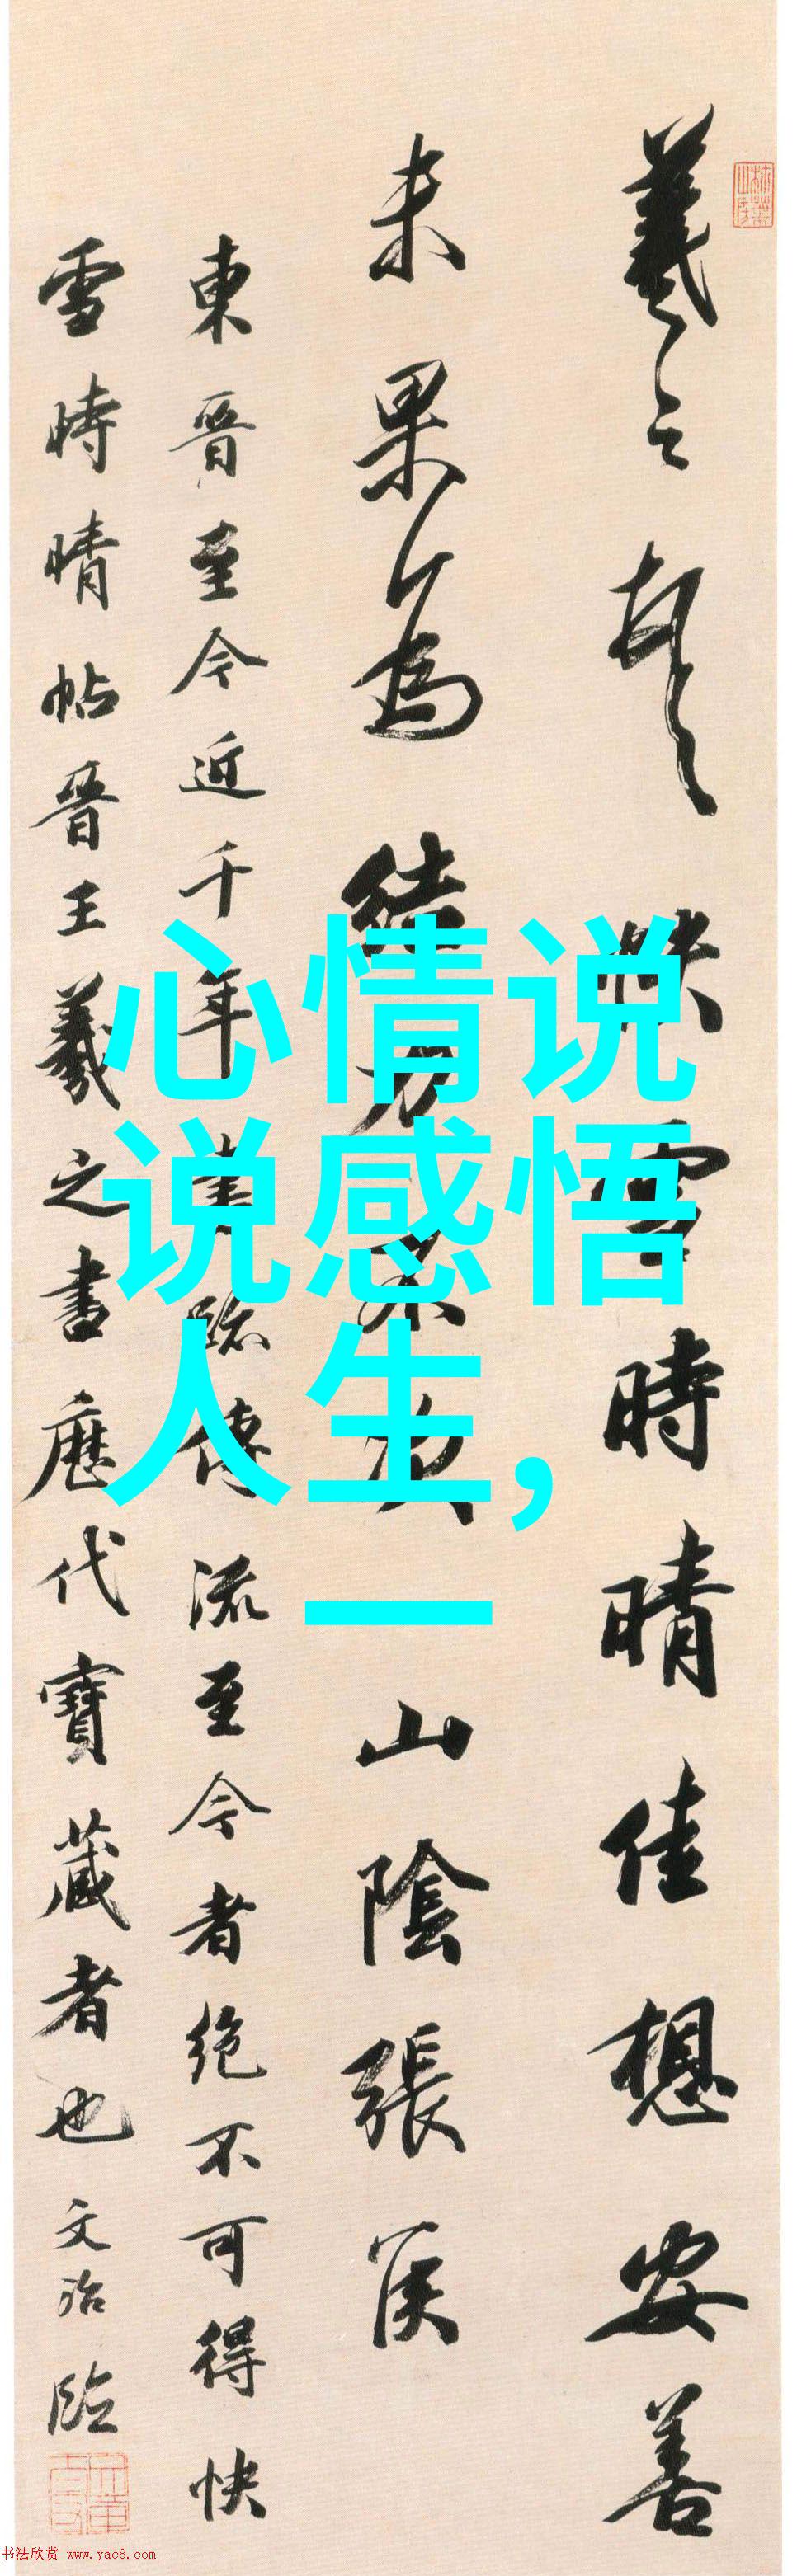 羲之頓首快雪時晴佳想安善
未果為結力不次山陰張侯
東晉至今近千年書跡傳流至今者絕不可得快
雪時晴帖晉王羲之書歷代寶藏者也文治臨
心情说
说感悟
人生,
一
书法欣赏 www.yac8.com